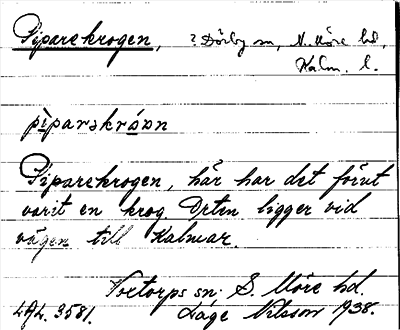 Piparekrogen, ? Dörby sn, N. Möre hd,
Kalm. l.
pìparskróɷn
Piparekrogen, här har det förut
varit en krog Orten ligger vid
vägen till Kalmar.
Voxtorps sn. S. Möre hd.
LAL. 3581. Låge Nilsson 1938.